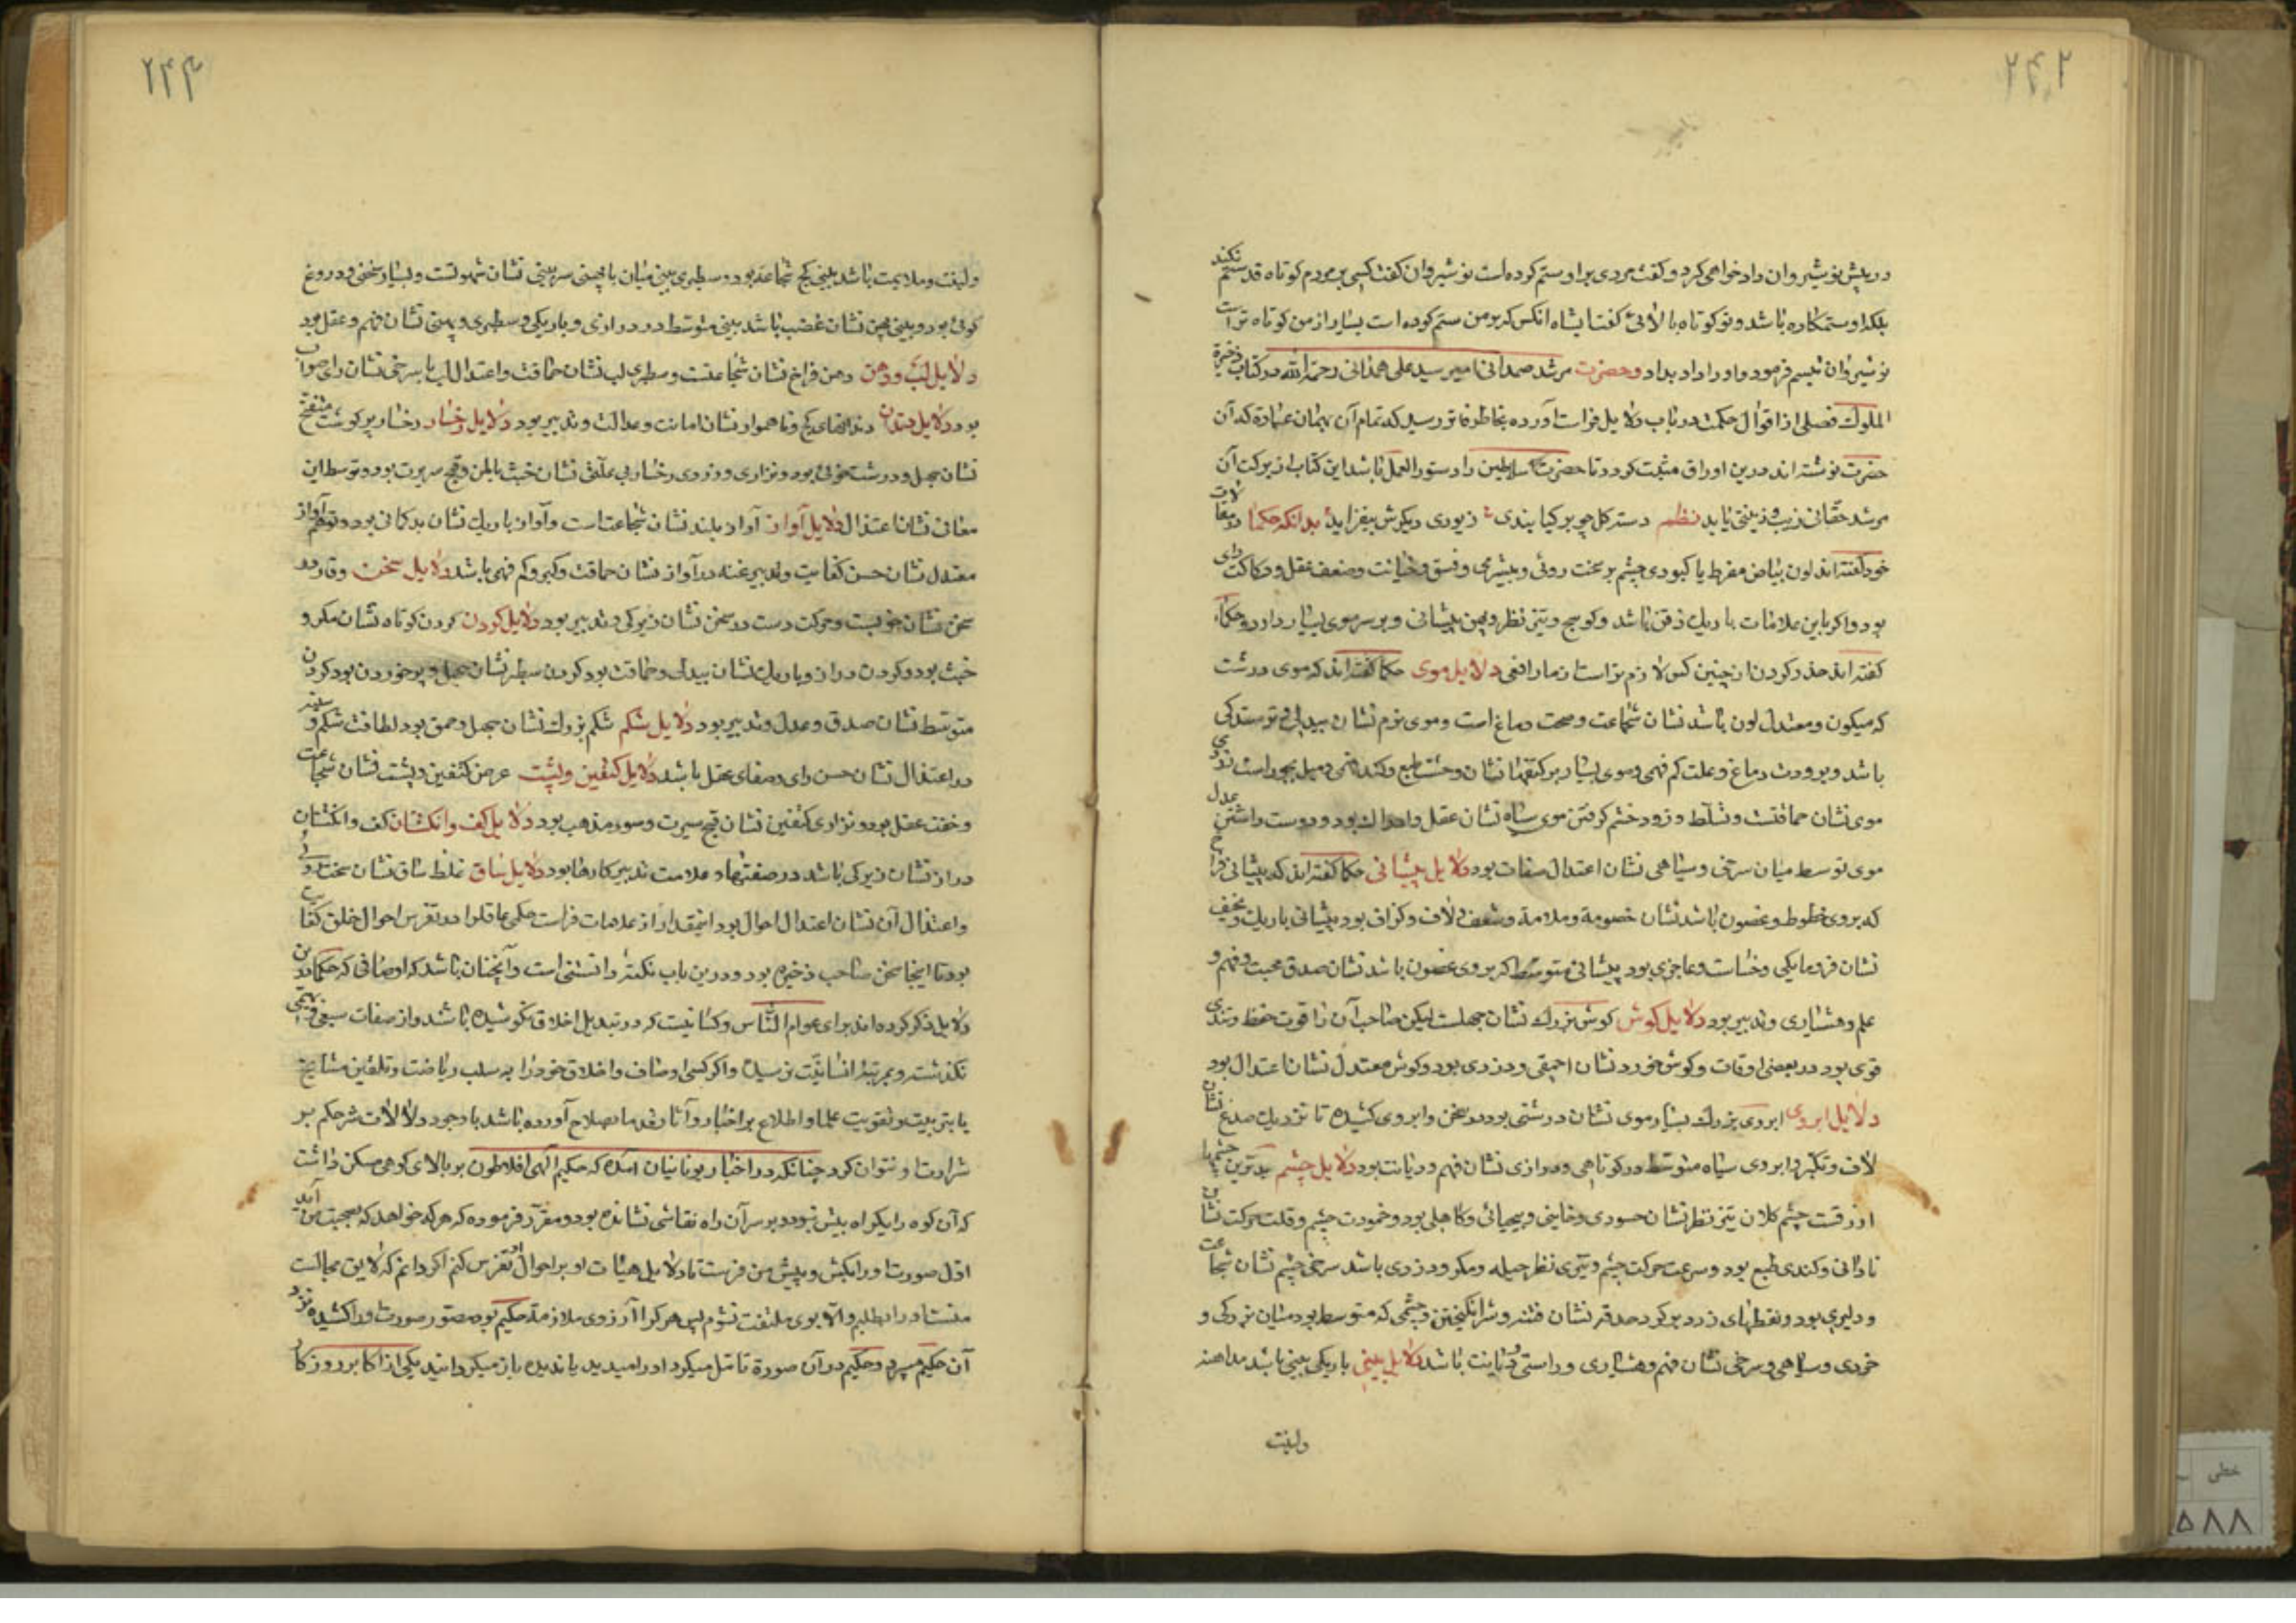 ۲۴۲
در پیش نوشیروان دادخواهی کرد و کفت مردی بر او ستم کرده است نوشیروان کفت کسی بر مردم کوتاه قد ستم نکند
بلکه او ستمکاره باشد و تو کوتاه بالائی کفت ای شاه انکس که بر من ستم کرده است بسیار از من کوتاه تر است
نوشیروان تبسم فرمود و او را داد بداد و حضرت مرشد صمدانی امیر سید علی همدانی رحمة الله در کتاب ذخیرة
الملوک فصلی از اقوال حکمت در باب دلایل فراست آورده بخاطر فاتر رسید که تمام آن بهمان عبارة که آن
حضرت نوشته اند درین اوراق مثبت کردد تا حضرت سلاطین را دستور العمل باشد این کتاب از برکت آن
مرشد حقانی زیب و زینتی یابد نظم دسته کل چو بر کیا بندی زیوری دیکرش بیفزاید بدانکه حکما در مقالات
خود کفته اند لون بیاض مفرط با کبودی چشم بر سخت روئی و بیشرمی و فسق و خیانت و ضعف عقل و رکاکت رای
بود و اکر با این علامات باریک ذقن باشد و کوسج و تیز نظر و پهن پیشانی و بر سر موی بسیار دارد و حکماء
کفته اند حذر کردن از چنین کس لازم تر است از مار افعی دلایل موی حکما کفته اند که موی درشت
که میکون و معتدل لون باشد نشان شجاعت و صحت دماغ است و موی نرم نشان بیدلی و ترسندکی
باشد و برودت دماغ و علت کم فهمی و موی بسیار بر کتفها نشان وحشت طبع و کند فهمی و میل بجور است زردی
موی نشان حماقتست و تسلط و زود خشم کرفتن موی سیاه نشان عقل و ادراک بود و دوست داشتن عدل
موی توسط میان سرخی و سیاهی نشان اعتدال صفات بود دلایل پیشانی حکما کفته اند که پیشانی فراخ
که بروی خطوط و غضون باشد نشان خصومة و ملامة و شغف و لاف و کزاف بود پیشانی باریک و نحیف
نشان فرومایکی و خساست و عاجزی بود پیشانی متوسط که بروی غضون باشد نشان صدق محبت و فهم و
علم و هشیاری و تدبیر بود دلایل کوش کوش بزرک نشان جهلست لیکن صاحب آن را قوت حفظ و تندی
قوی بود در بعضی اوقات و کوش خورد نشان احمقی و دزدی بود و کوش معتدل نشان اعتدال بود
دلایل ابروی ابروی بزرک بسیار موی نشان درشتی بود در سخن و ابروی کشیده تا نزدیک صدغ نشان
لاف و تکبر و ابروی سیاه متوسط در کوتاهی و درازی نشان فهم و دیانت بود دلایل چشم بدترین چشمها
ازرقست چشم کلان تیز نظر نشان حسودی و خاینی و بیحیائی و کاهلی بود و خمودت چشم و قلت حرکت نشان
نادانی و کندی طبع بود و سرعت حرکت چشم و تیزی نظر حیله و مکر و دزدی باشد سرخی چشم نشان شجاعت
و دلیری بود و نقطهای زرد بر کرد حدقه نشان فتنه و شر انکیختن و چشمی که متوسط بود میان بزرکی و
خردی و سیاهی و سرخی نشان فهم و هشیاری و راستی و دیانت باشد دلایل بینی باریکی بینی باشد مداهنه
ولینت
۲۴۳
ولینت و ملایمت باشد بینی کج شجاعة بود و سطبری بینی میان با پهنی سر بینی نشان شهوتست و بسیار سخنی و دروغ
کوئی بود و بینی پهن نشان غضب باشد بینی متوسط در درازی و باریکی و سطبری و پهنی نشان فهم و عقل بود
دلایل لب و دهن دهن فراخ نشان شجاعتست و سطبری لب نشان حماقت و اعتدال لب با سرخی نشان رای صواب
بود دلایل دندان دندانهای کج و ناهموار نشان امانت و عدالت و تدبیر بود دلایل رخسار رخسار پر کوشت منتفخ
نشان جهل و درشت خوئی بود و نزاری و زردی رخسار بی علتی نشان خبث باطن و قبح سیرت بود و توسط این
معانی نشان اعتدال دلایل آواز آواز بلند نشان شجاعت است و آواز باریک نشان بدکمانی بود و توسط آواز
معتدل نشان حسن کفایت و تدبیر غنه در آواز نشان حماقت و کبر و کم فهمی باشد دلایل سخن وقار در
سخن نشان خوبیست و حرکت دست در سخن نشان زیرکی و تدبیر بود دلایل کردن کردن کوتاه نشان مکر و
خبث بود و کردن دراز و باریک نشان بیدلی و حماقت بود کردن سطبر نشان جهل و پر خوردن بود کردن
متوسط نشان صدق و عدل و تدبیر بود دلایل شکم شکم بزرک نشان جهل و حمق بود لطافت شکم و سینه
در اعتدال نشان حسن رای و صفای عقل باشد دلایل کتفین و پشت عرض کتفین و پشت نشان شجاعت
و خفت عقل بود و نزاری کتفین نشان قبح سیرت و سوء مذهب بود دلایل کف و انکشتان کف و انکشتان
دراز نشان زیرکی باشد در صفتها و علامت تدبیر کارها بود دلایل ساق غلظ ساق نشان سخت روئی
و اعتدال آن نشان اعتدال احوال بود اینقدر از علامات فراست حکمی عاقل را در تفرس احوال خلق کفایت
بود تا اینجا سخن صاحب ذخیره بود و درین باب نکتهٔ دانستنی است و آنچنان باشد که اوصافی که حکما درین
دلایل ذکر کرده اند برای عوام الناس و کسانیست که در تبدیل اخلاق نکوشیده باشد و از صفات سبعی و بهیمی
نکذشته و بمرتبهٔ انسانیت نرسیده و اکر کسی اوصاف و اخلاق خود را بسبب ریاضت و تلقین مشایخ
یا بتربیت و تقویت علما و اطلاع بر اخبار و آثار قدما بصلاح آورده باشد با وجود دلالات شر حکم بر
شرارت او نتوان کرد چنانکه در اخبار یونانیان آمده که حکیم الهی افلاطون بر بالای کوهی مسکن داشت
که آن کوه را یک راه بیش نبود و بر سر آن راه نقاشی نشانده بود و مقرر فرموده که هر که خواهد که بصحبت من آید
اول صورت او را بکش و پیش من فرست تا دلایل هیئات او بر احوال او تفرس کنم اکر دانم که لایق مجالست
منست او را بطلبم و الا بوی ملتفت نشوم پس هر کرا آرزوی ملازمة حکیم بود مصور صورت او را کشیده نزد
آن حکیم میبرد و حکیم در آن صورة تامل میکرد او را میدید یا ندیده باز میکردانید یکی از اکابر روزکار